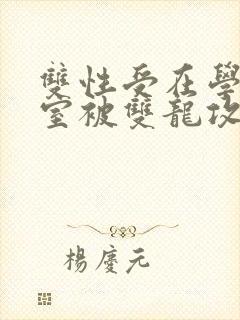 雙性受在學
室被雙龍攻
楊慶元